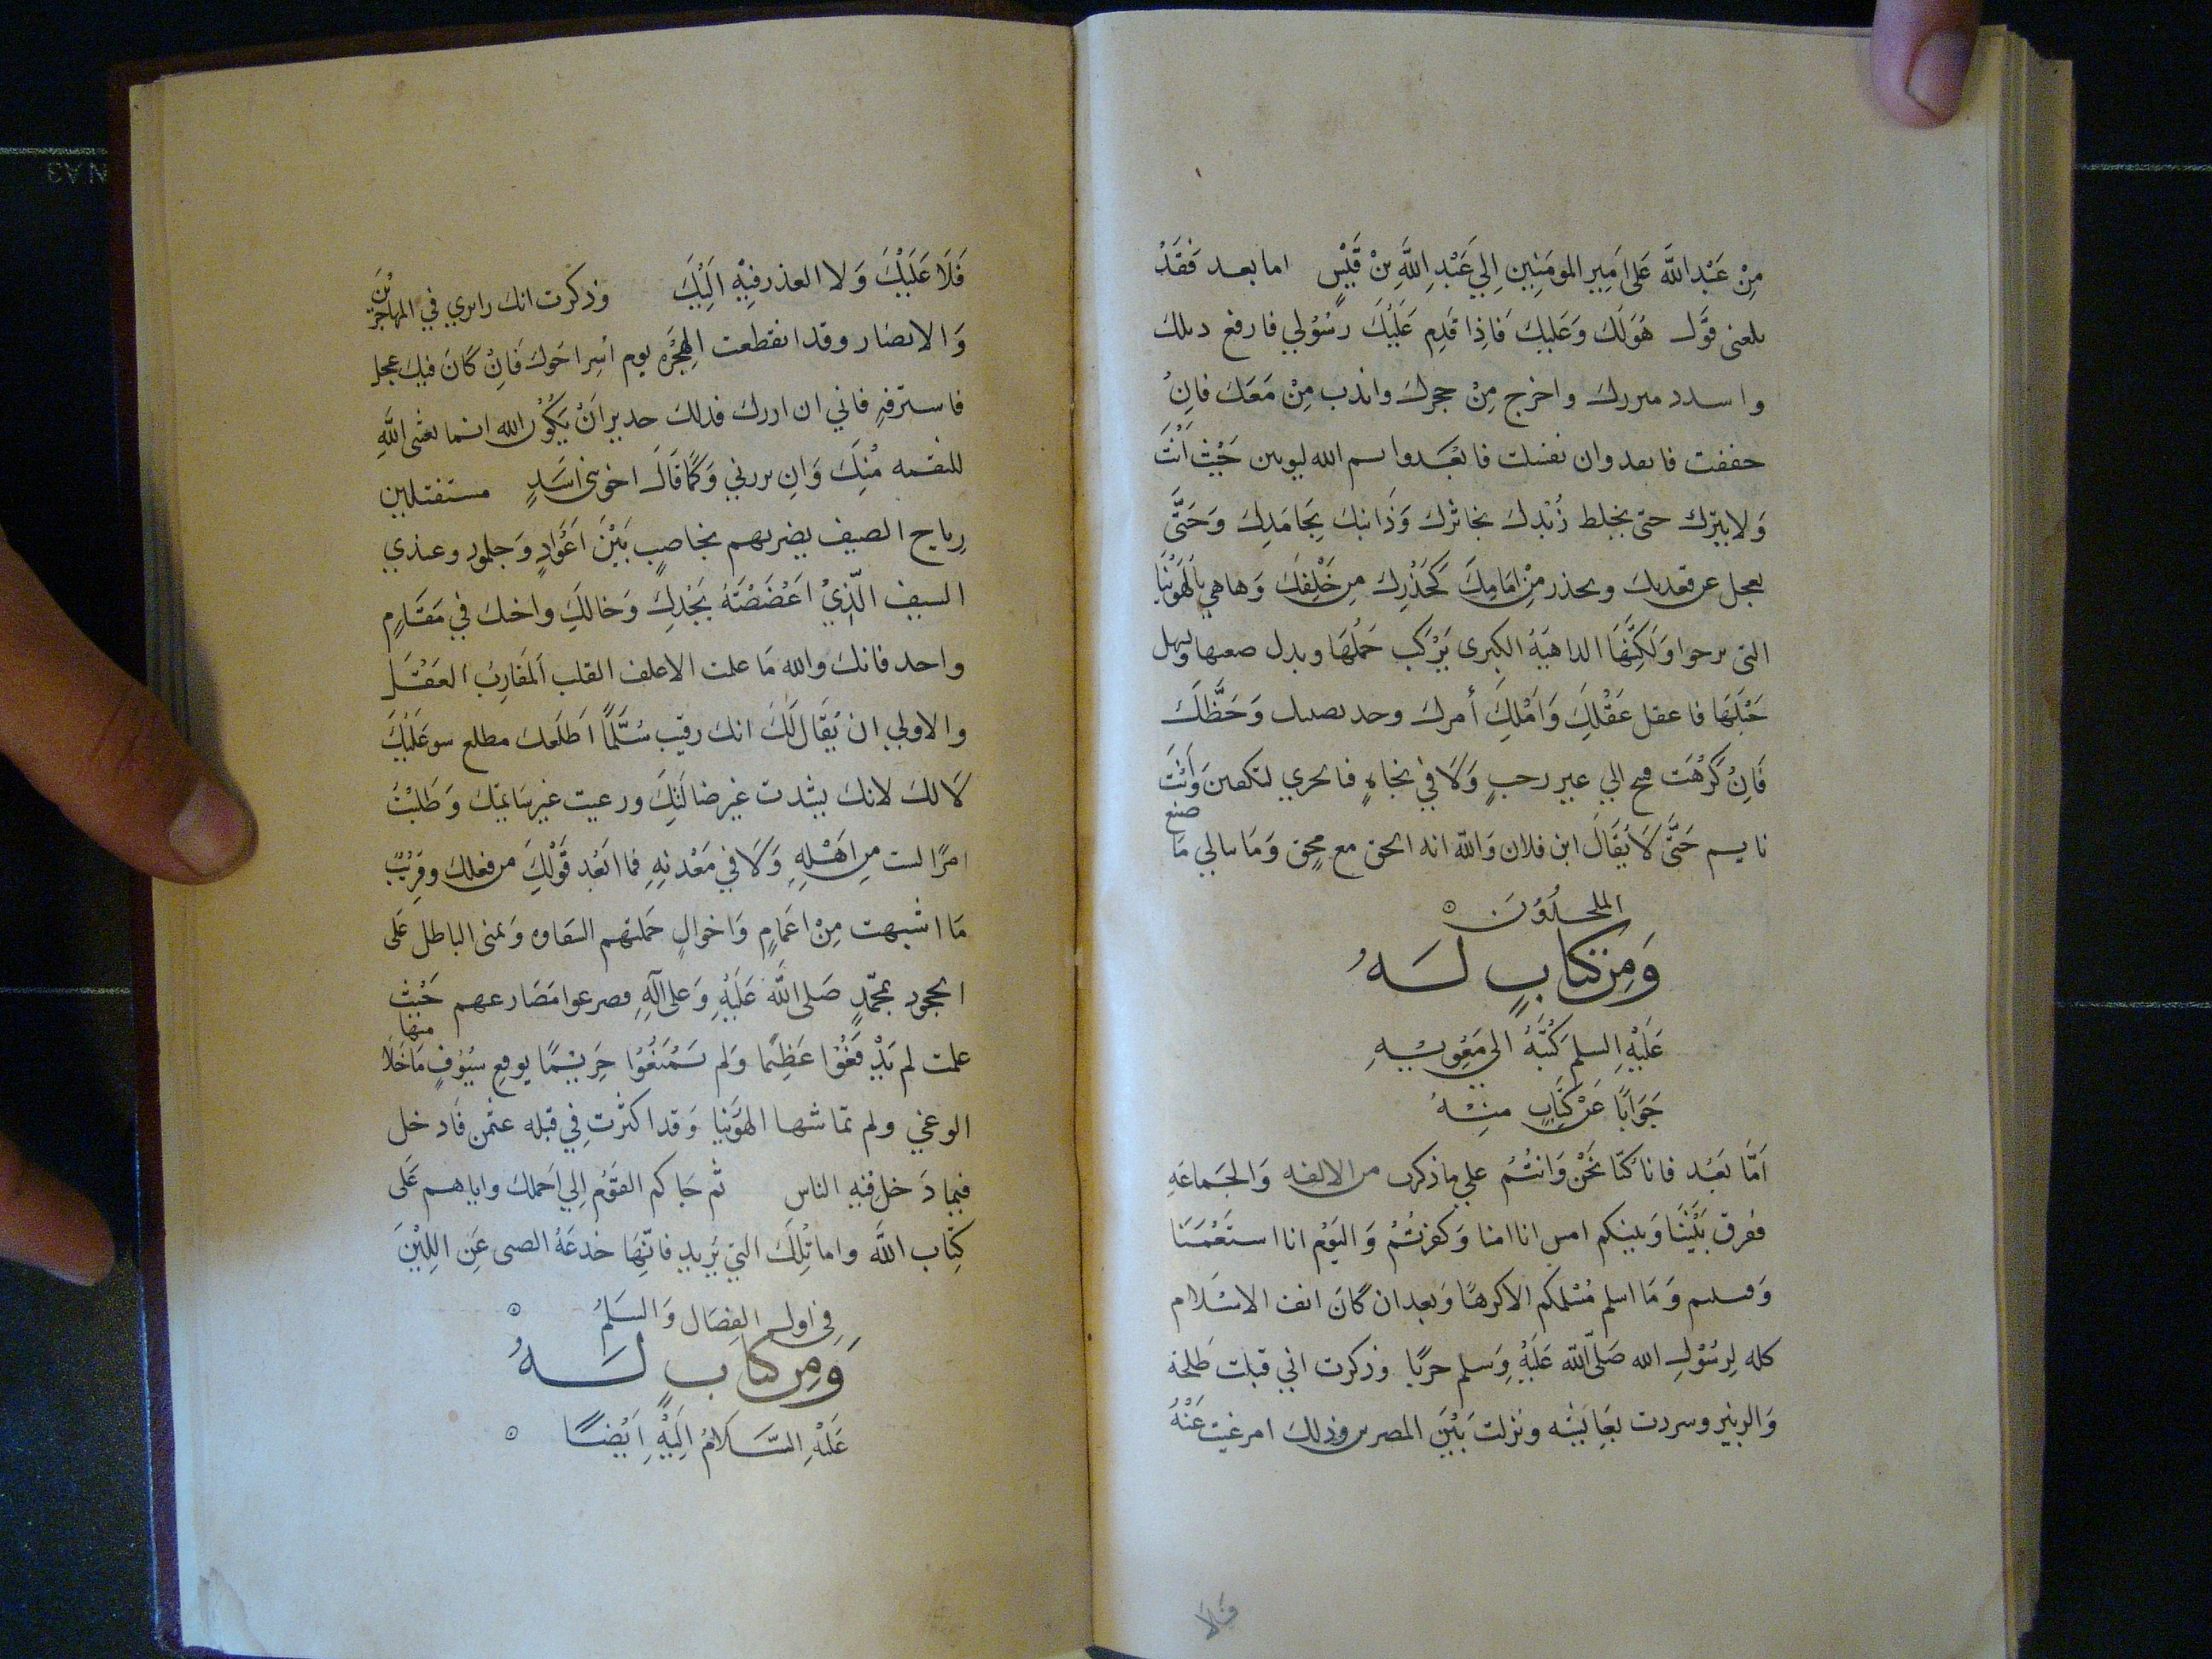 مِنْ عَبْدِ اللَّه عَلى اَمِيرِ المومِنِين اِلي عَبْدِ اللَّهِ بنْ قَيْسٍ اما بعد فَقَدْ
بلغنى قَوْل هُوَلَكَ وَعَليكَ فَاِذا قَدِم عَلَيْكَ رَسُوْلي فارفع ديلك
واسدد مىررك واخرج مِنْ حجرك واندب مِنْ مَعَكَ فاِنْ
حففت فابعد وان تفشلت فابْعَد وايم الله ليوىىن حَيْث اَنْتَ
وَلا يترك حتى يخلط زُبْدك بخاثرك وَذَائبكَ بِجَامَدِكَ وَحَتَّى
يعجل عن قعدىك وىحذر مِنْ اَمَامِكَ كَحَذْرِكَ مِن خَلْفِكَ وَما هي بالْهُوَيْنا
التى ىرحوا وَلكِنَّهَا الداهِيَةُ الكبرى يَرْكَب حَمْلُهَا وىدل صعىها ويسهل
جَبَلَهَا فاعقل عَقْلَكَ وَاَمْلِكَ أمرك وخد ىصىىك وَحَظَّكَ
فَاِنْ كَرِهْتَ فىح الي غير رحبٍ وَلَا في نجاهٍ فالحري لتكفىن وَاَنْتَ
نايم حَتَّى لَا يُقَال ابن فلان وَاللّه انه الحق مع محِقٍ وَمَا ىبالي مَا صنع
الملحدُوْنَ ه
وَمِن كتابٍ لَهُ
عَلَيْهِ السلم كَتَبَهُ الى مَعٰوِيَهِ
جَوَابًا عَنْ كِتَابٍ مِنْهُ
اَمَّا بَعْد فانا كنّا نَحْنُ وَانتُمْ علي ماذكرت من الالفه وَالجَماعَهِ
ففرق بَيْنَنَا وَبينكم امس انا امنا وَكَفَرتُمْ وَاليَوْم انا استَقَمْنَا
وَفىىىم وَمَا اسلم مُسْلمكم الا كرهًا وَبعد ان كَانَ انف الاسْلام
كله لِرسُوْلِ الله صَلىّ اللّه عَلَيْهِ وَسلم حربًا وذكرت اني قتلت طَلحَة
وَالزبير وسردت بعَايشَه ونزلت بَيْنَ المصرين وذلك امر غبت عَنْهُ
فَلَا
فَلَا عَلَيْكَ وَلا العذر فِيْهِ اِلَيْكَ وذكرت انك زايرى في المهاجرين
وَالانصَار وقد انقطعت الهِجْرَه يوم اُسِرَ اخوك فَاِنْ كَانَ فيك عجل
فاسترفه فاني ان ازرك فدلك جدير اَنْ يَكُوْن الله انما بعثى اللَّهِ
للنقمه مْنِكَ وَاِن تررني وَكَمَا قَالَ اخو بنى اَسَدٍ مستقبلين
رِياح الصيف يضربهم بحاصبٍ بَيْنَ اَغْوَارٍ وَجلمود وعندي
السيف الَّذِيْ اَعْضَضْتَهُ بَجْدِكَ وَخالكَ واخيك في مَقَامٍ
واحد فانك والله مَا علمت الاغلف القلب اَلمقَارِب العَقْل
والاولي ان يُقَال لَكَ انك رقيت سُلَّمًا اَطلَعك مطلع سوعَلَيْكَ
لَا لك لانك نشدت غير ضالَتِكَ ورعيت غير سَايمتك وَطَلَبْتَ
امرًا لست مِن اَهْلِهِ وَلَا في مَعْدنهِ فما ابْعَد قَوْلَكَ من فعلك وقَرِيْبٌ
مَا اشبهت مِنْ اعمَامٍ وَاخوالٍ حَملتهم الشقاوه وَتمنى الباطل عَلى
الجحود بمحّمدٍ صَلى اللَّه عَلَيْهِ وَعلى آلِهِ فصرعوا مَصَارعهم حَيْث
علمت لم يَدْفَعُوْا عَظِيمًا وَلم يَمْنَعُوا حَرِيْمًا بوقع سيُوْفٍ مَا خَلَا منها
الوغي ولم تماشها الهُوَينا وَقد اكثَرتَ في قتله عثمن فَادخل
فيما دَخل فيه الناس ثم حَاكم القَوْم اِلي اَحملك واياهم عَلى
كِتاب اللَّه واما تِلْكَ التي يَريد فانّها خدعَهُ الصبى عَنِ اللبنِ
فِي اول الفِصَال وَالسَلمُ ه
وَمِن كتابٍ لَهُ
عَلَيْهِ السَّلامُ اِلَيْهِ اَيْضًا ه